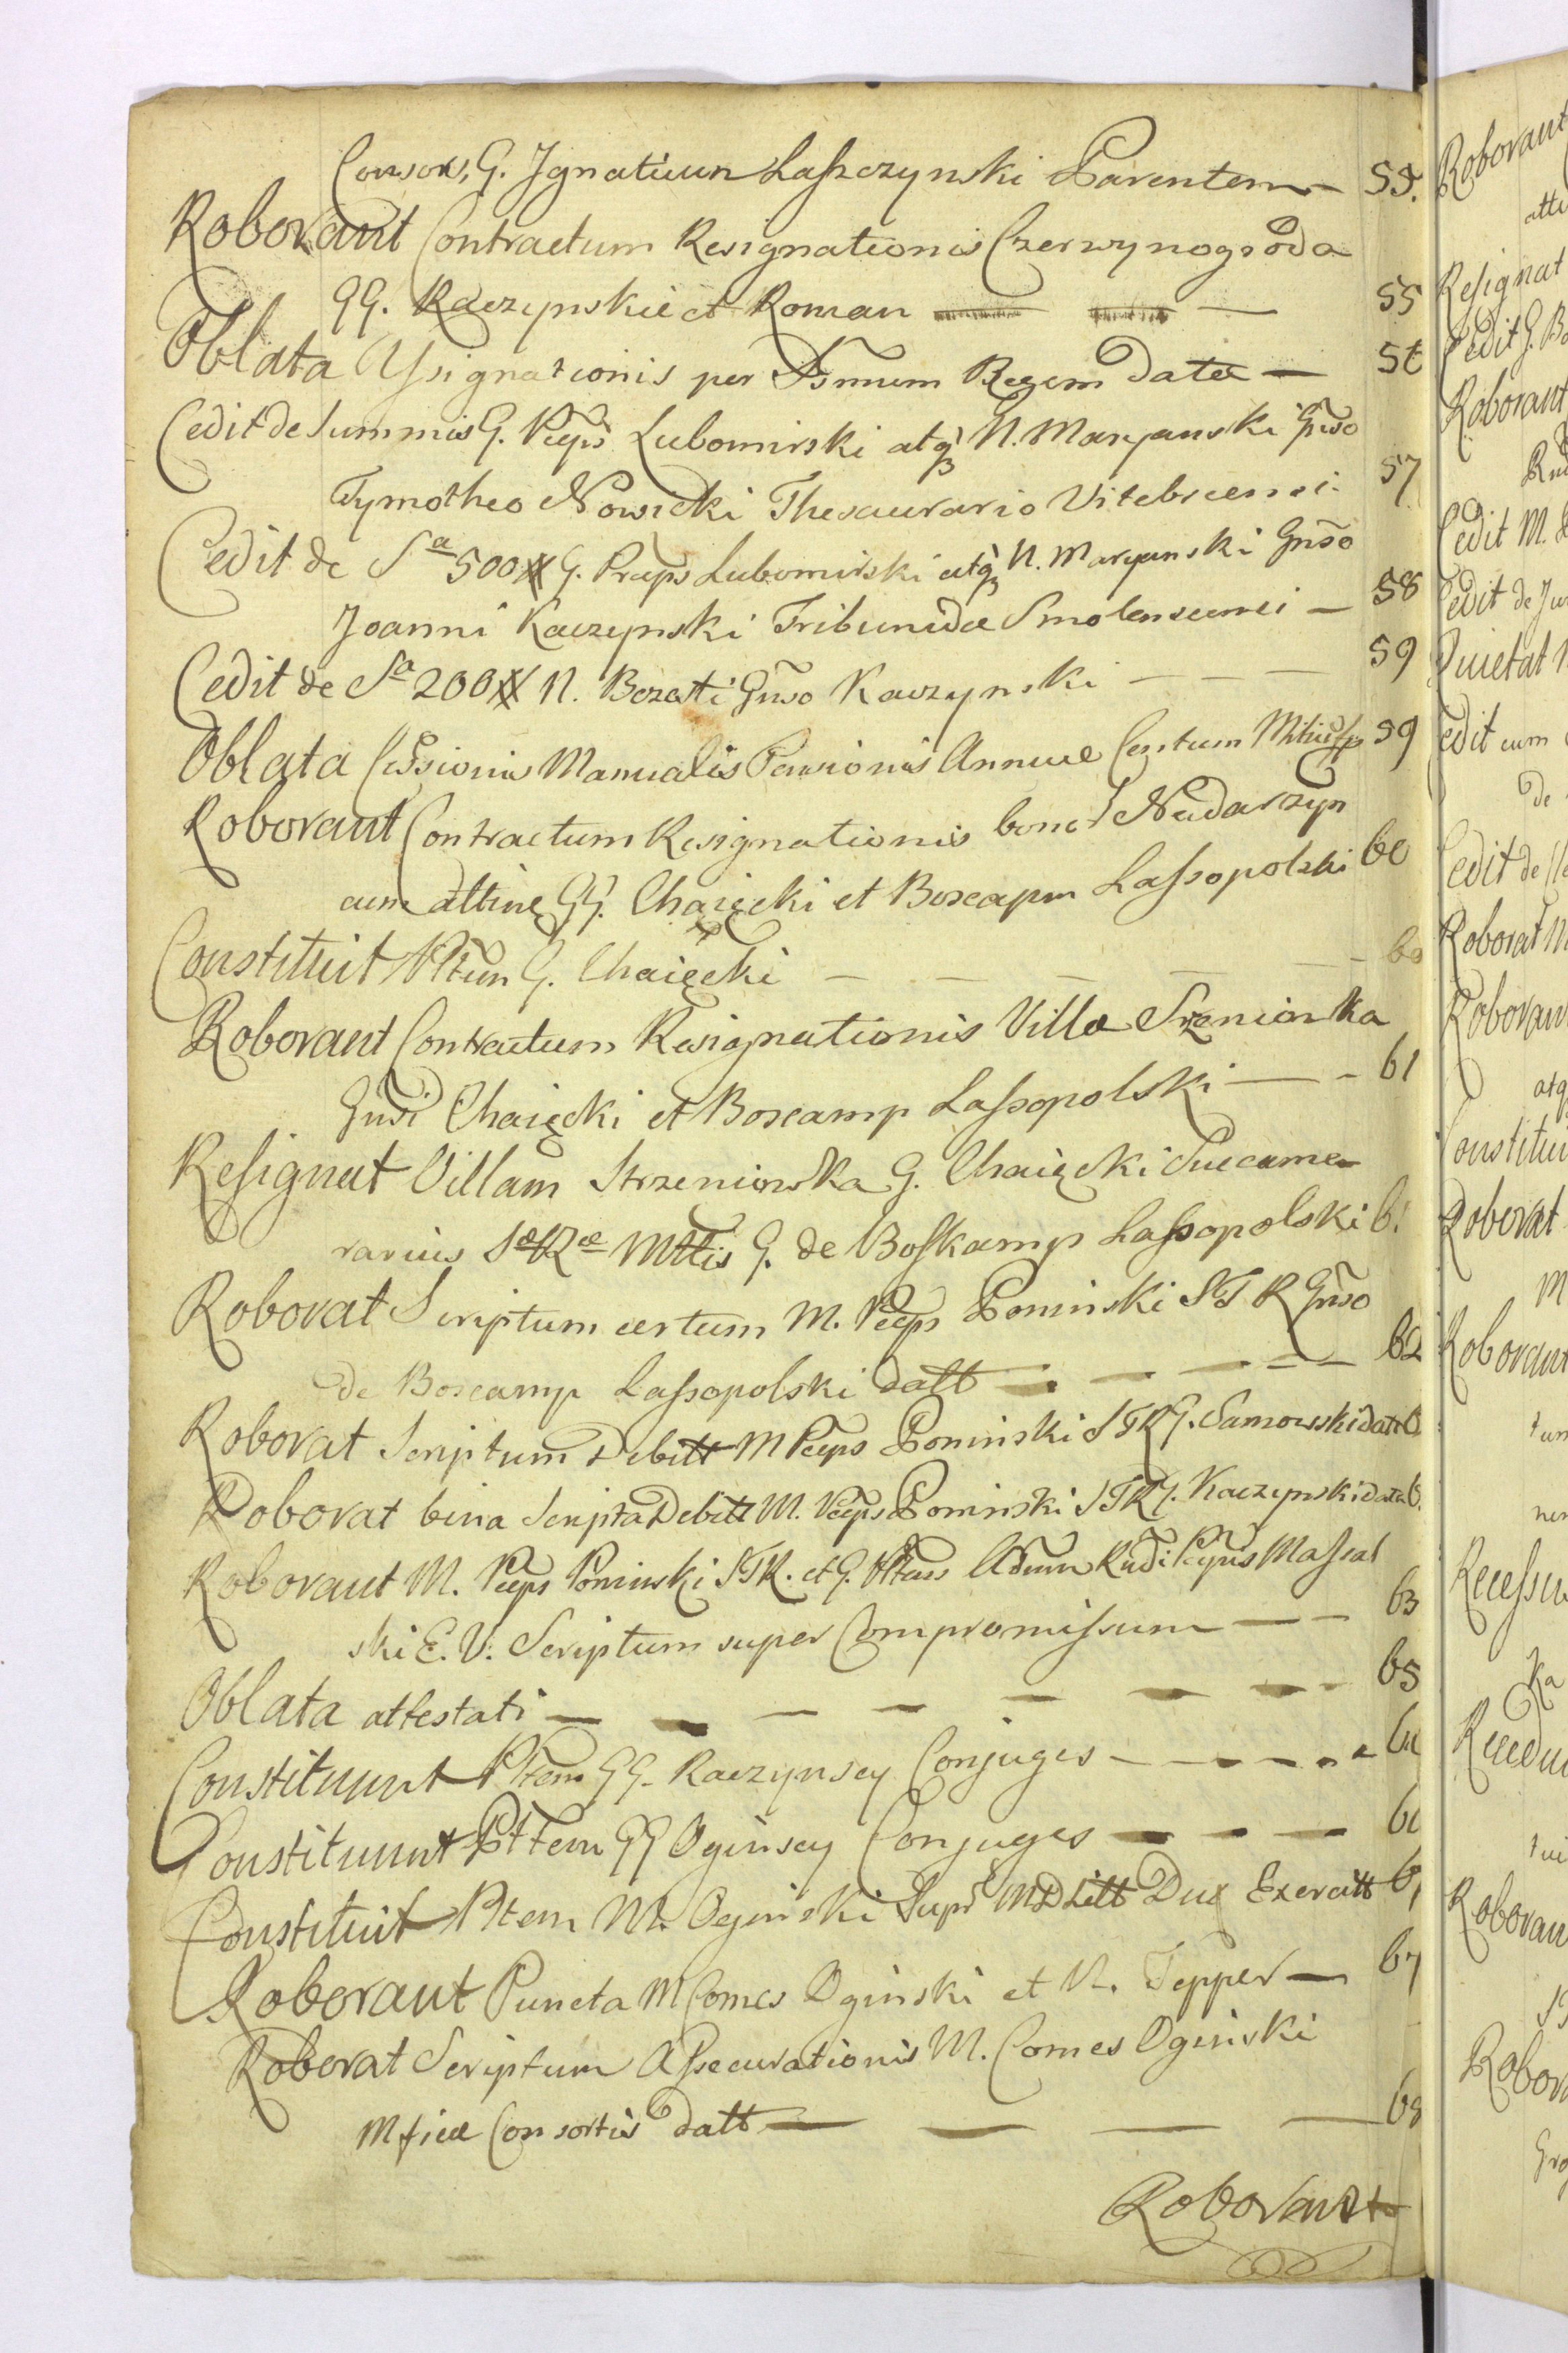 Consors, G. Jgnatium Lasszczynski Parentem — 55.
Roborant Contractum Resignationis Czerwynogroda
GG. Raczynskie et Roman — 55
Oblata Assignationis per Ssmum Regem datæ — 56
Cedit de Summis G. Pceps Lubomirski atq3 N. Maryanski Gnso
Tymotheo Nowicki Thesaurario Vitebscensi. 57
Cedit de Sa 500 # G. Prceps Lubomirski atq3 N. Maryanski Gnso
Joanni Kaczynski Tribunidæ Smolenscensi — 58
Cedit de Sa 200 # N. Bozati Gnso Kaczynski — — — 59
Oblata Cessionis Manualis Pensionis Annuæ Centum Mille fp 59
Roborant Contractum Resignationis bonor Nadarzyn
cum attinę GG. Chaięcki et Boscapm Lassopolski 60
Constituit Pltem G. Chaięcki — — — — — 60
Roborant Contractum Resignationis Villæ Srzeniowka
Gnsi Chaięcki et Boscamp Lassopolski — - 61
Resignat Villam Strzeniowka G. Chaięcki Succame
rarius Sæ Ræ Mttis G. de Boskamp Lassopolski 61
Roborat Scriptum certum M. Pceps Poninski STR Gnso
de Boscamp Lassopolski datt — — — — — 62
Roborat Scriptum Debitt M Pceps Poninski STR G. Samowski datt 6
Roborat bina Scripta Debitt M. Pceps Poninski STR G. Kaczynski data 6.
Roborant M. Pceps Poninski STR. et G. Pltens Adum Rndi Pcpis Massal
ski E. V. Scriptum super Compromissum — — 63
Oblata attestati — — — — — — — 65
Constituunt Pltem GG. Raczynscy Conjuges — — — — 6
Constituunt Plttem GG Oginscy Conjuges — — — 6
Constituit Pltem M. Oginski Supr MD Litt Dux Exercitt 6
Roborant Puncta M Comes Oginski et N. Tepper — 67
Roborat Scriptum Assecurationis M. Comes Oginski
Mficæ Consortis datt — — — — 68
Roborant
Roborant
att
Resignat
Cedit G. B
Roborant
Cedit M.
Cedit de Ju
Quietat
Cedit cum
de
Cedit de
Roborat
Roboran
atq
Constitui
Roborat
M
Roborant
tum
Recessu
ka
Recedu
Roboran
Robor